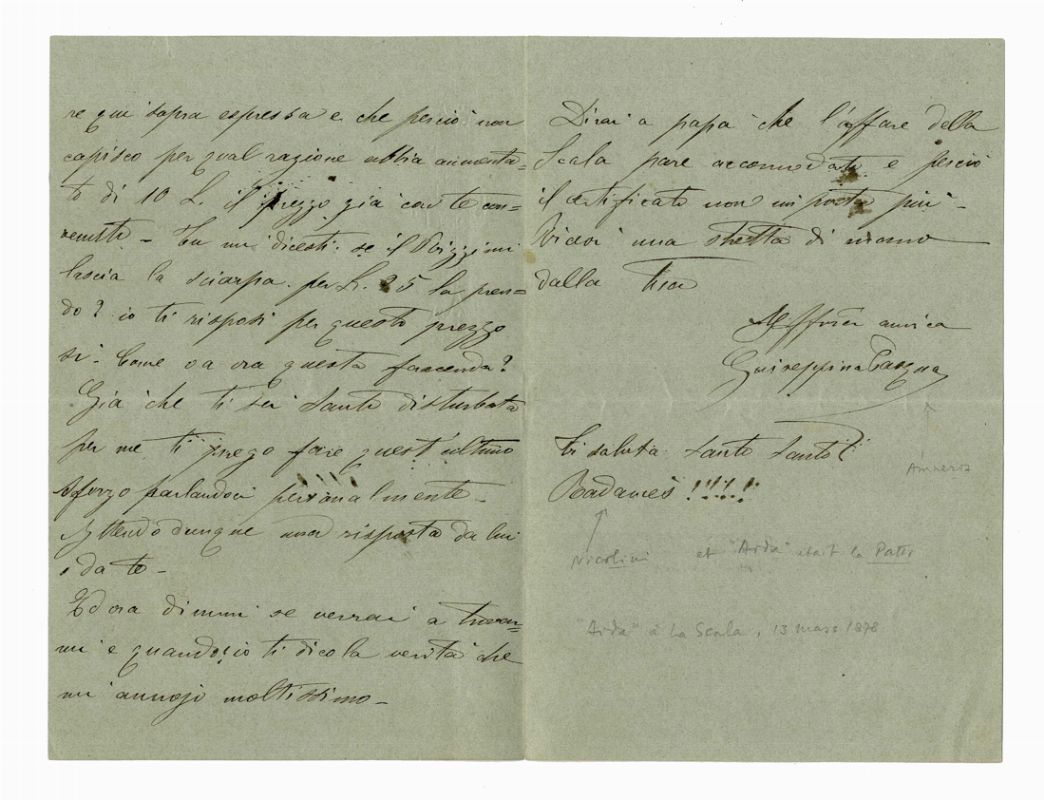 re qui sopra espressa e che perciò non
capisco per qual ragione abbia aumenta=
to di 10 L. il prezzo già con te con=
venuto - Tu mi dicesti: se il
lascia la sciarpa per L. 25 la pren=
do? io ti risposi per questo prezzo
si. Come va ora questa faccenda?
Già che ti sei tanto disturbata
per me ti prego fare quest'ultimo
sforzo parlandoci personalmente -
Attendo dunque una risposta da lui
o da te -
Ed ora dimmi se verrai a trovar=
mi e quando; io ti dico la verità che
mi annojo moltissimo -
Dirai a papà che l'affare della
Scala pare accomodato e perciò
il certificato non importa più -
Ricevi una stretta di mano
dalla tua
Aff.ma amica
Giuseppina Pasqua
Amneris
Ti saluta tanto tanto il
Radames!!!!!
Nicolini et "Aida" était la Patti
"Aida" à la Scala, 13 mars 1878